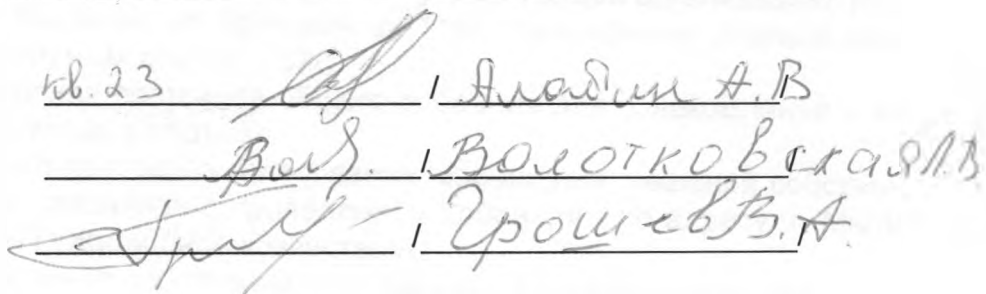 кв. 23 / Алабин А.В
Вол. / Волотковская Л.В.
/ Грошев В.А.